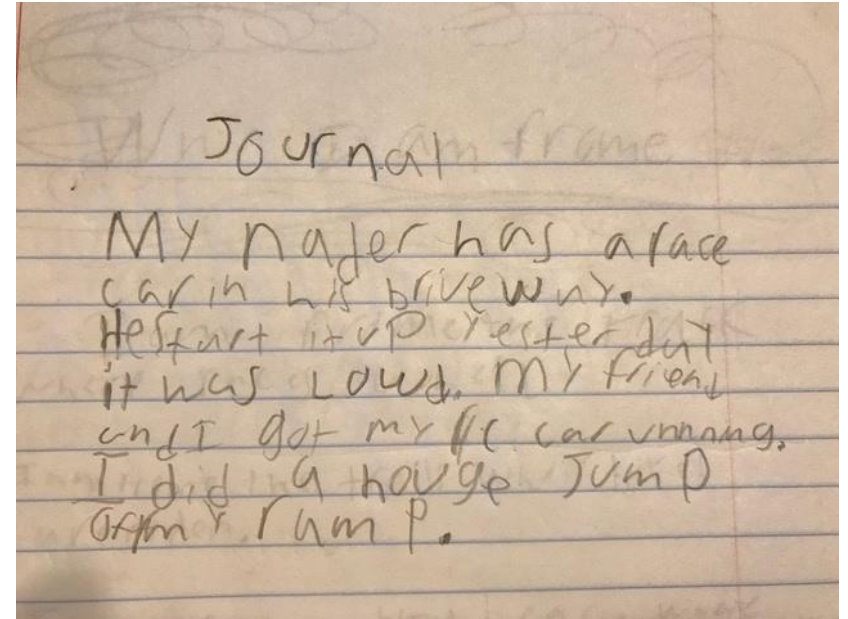 Journal
My nader has a race
car in his brive wny.
He start it up yesterday
it was Lowd. My friend
and I got my RC car unnang.
I did a houge Jump
off my ramp.